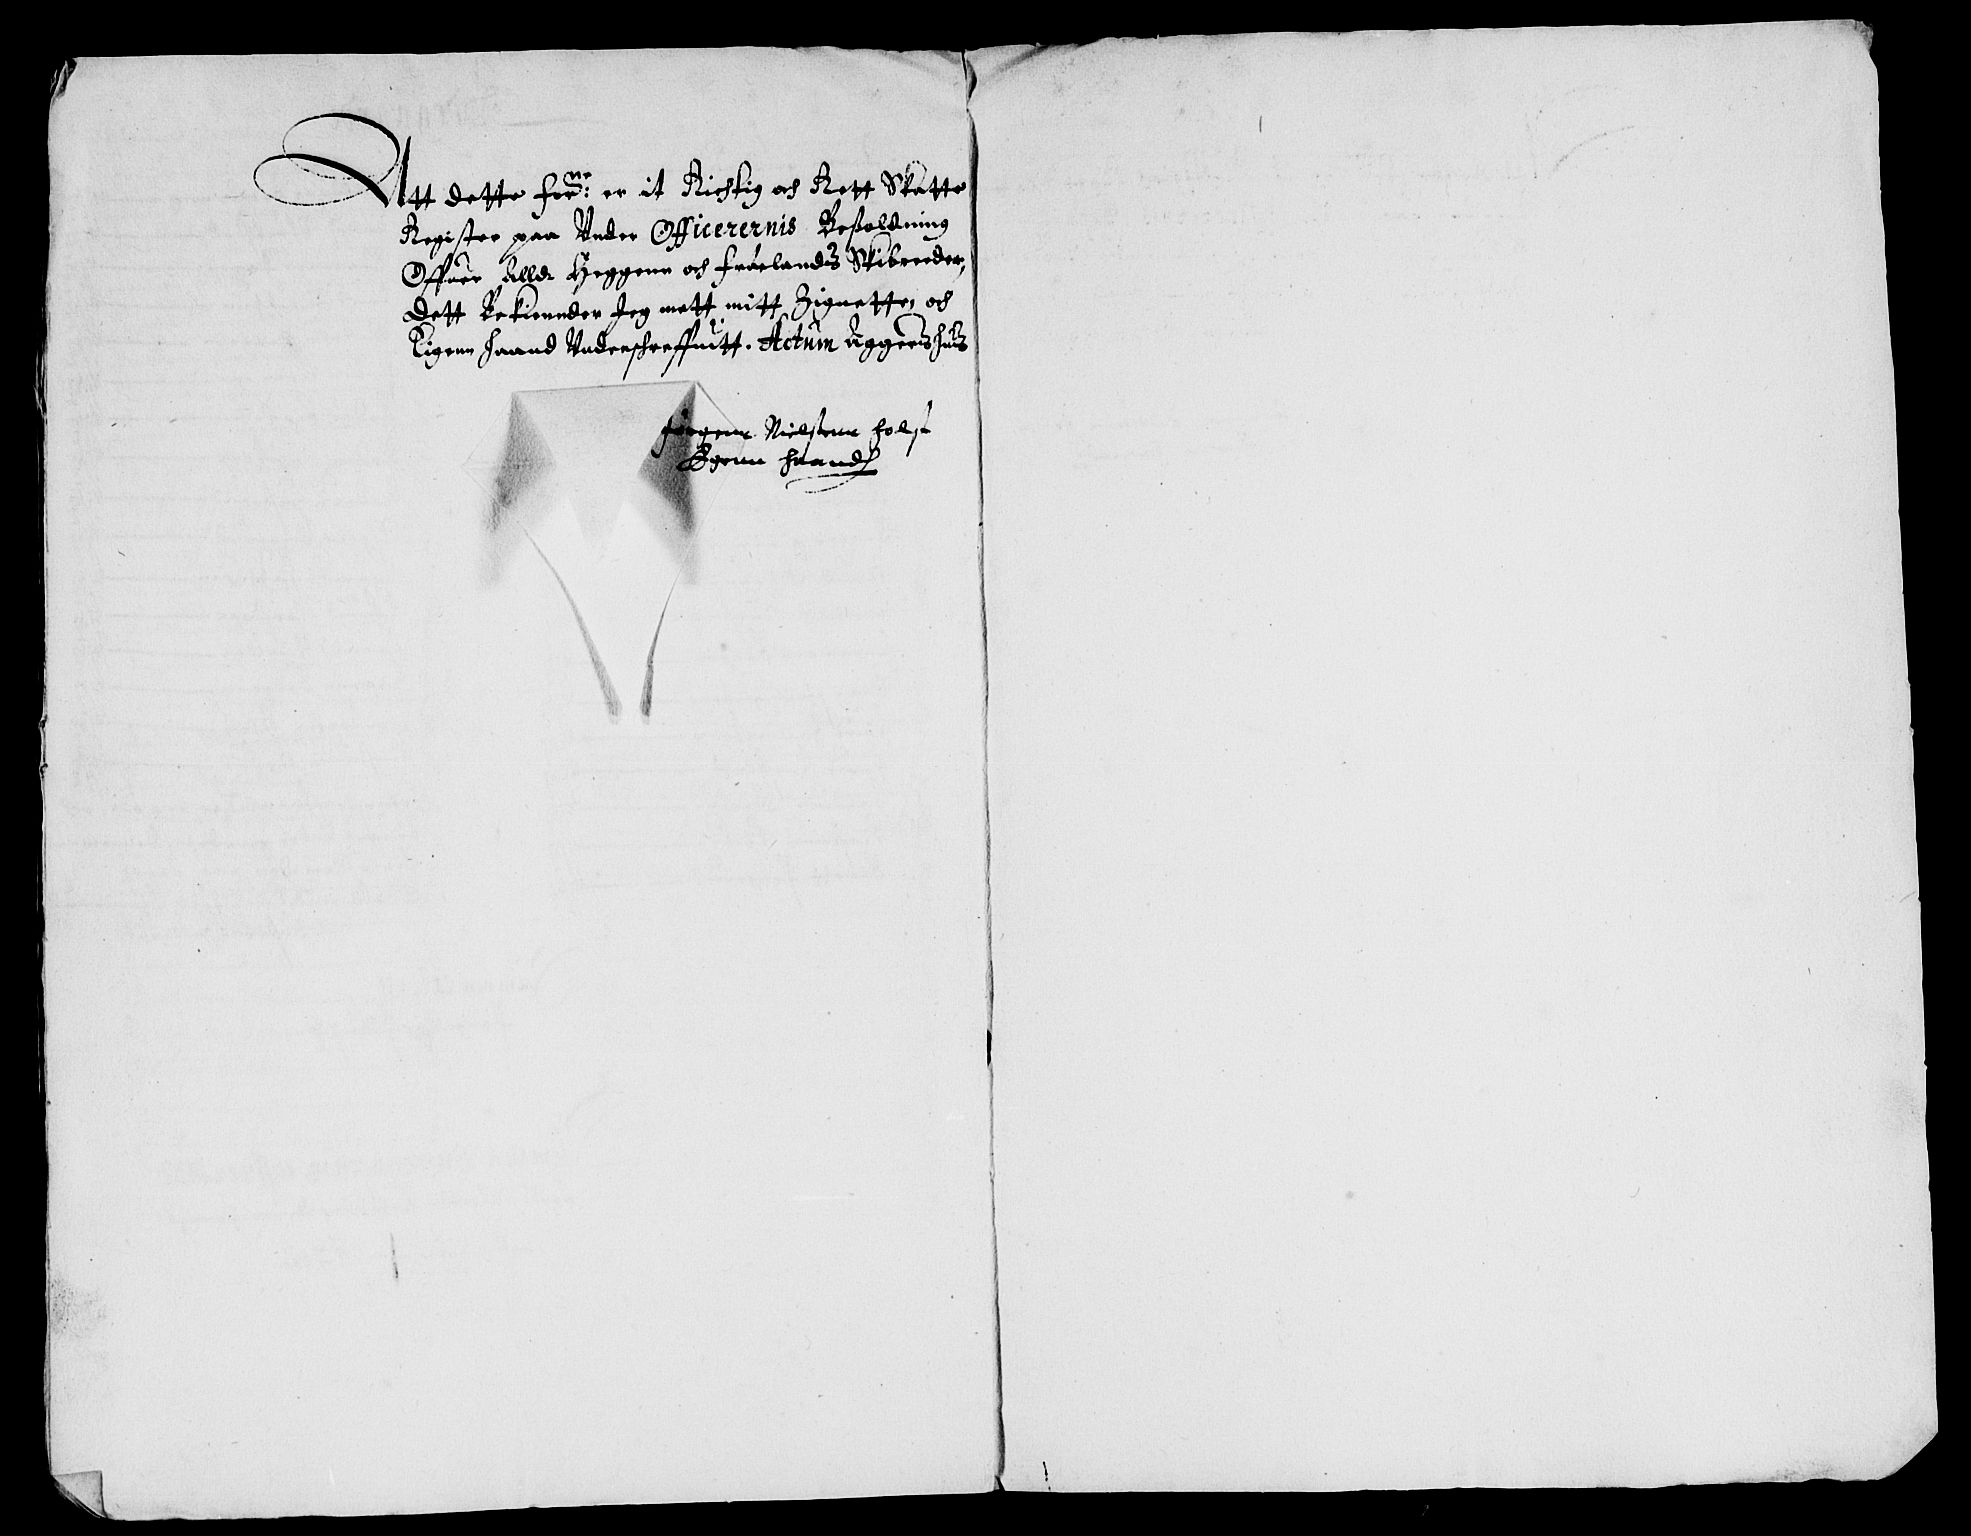 Att dette for:ne er it Richtig och Rett Skatte
Register paa Vnder Officerernis Besoldning
Offuer Alld: Heggenn och Frølands Skibreeder,
Dett Bekiennder Jeg mett mitt Zignette, och
Eigenn Haand Vnderschreffuitt. Actum Aggershuus
Jørgenn Nielsenn Holst
Egenn Haand